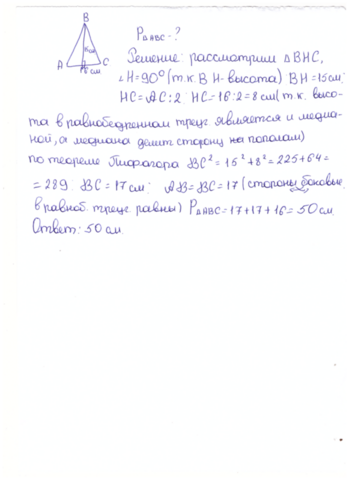 B
P△ABC - ?
Решение: рассмотрим △BHC,
A H C
16 см
∠H = 90° (т.к. BH - высота) BH = 15 см;
HC = AC : 2; HC = 16 : 2 = 8 см (т.к. высо-
та в равнобедренном треуг является и медиа-
ной, а медиана делит сторону на пополам)
по теореме Пифагора BC² = 15² + 8² = 225 + 64 =
= 289; BC = 17 см; AB = BC = 17 (стороны боковые
в равноб. треуг равны) P△ABC = 17 + 17 + 16 = 50 см.
Ответ: 50 см